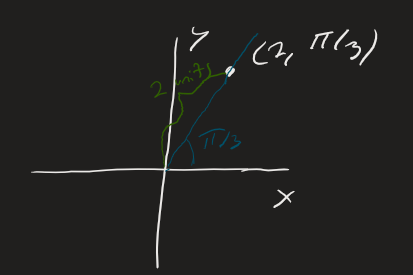 y
(2, π/3)
2 units
π/3
x